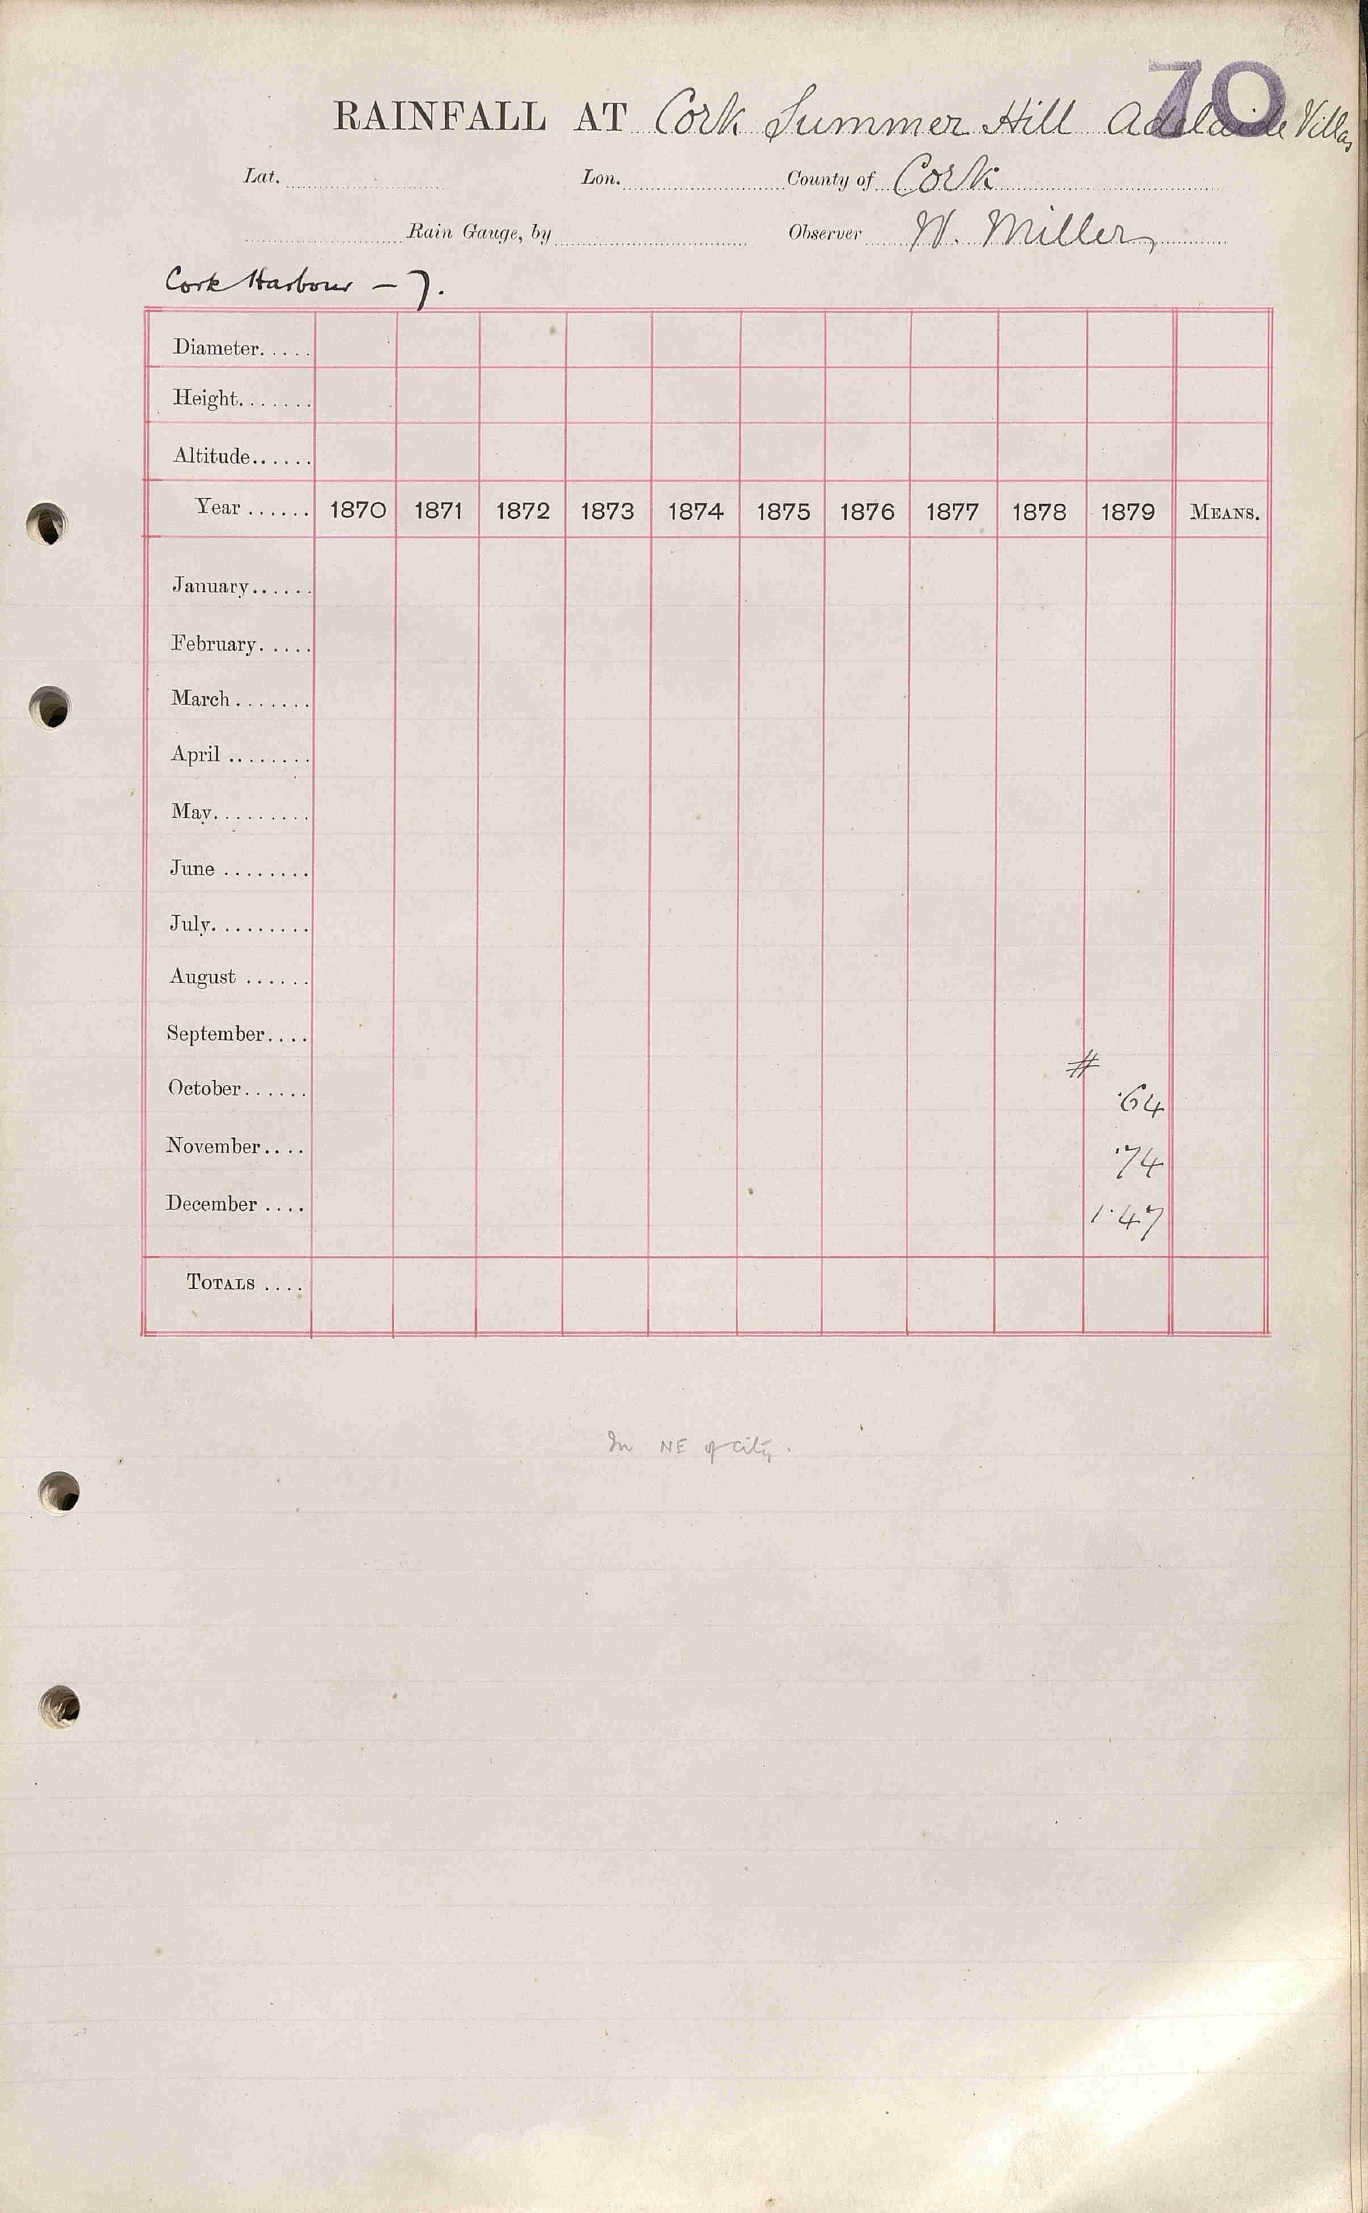 70
RAINFALL AT Cork Summer Hill Adelaide Villas
Lat. Lon. County of Cork
Rain Gauge, by Observer W. Miller
Cork Harbour – 7.
Diameter.....
Height.......
Altitude......
Year ...... 1870 1871 1872 1873 1874 1875 1876 1877 1878 1879 MEANS.
January......
February.....
March.......
April ........
May.........
June ........
July.........
August ......
September....
#
October...... ·64
November.... ·74
December .... 1·47
TOTALS ....
In NE of city.